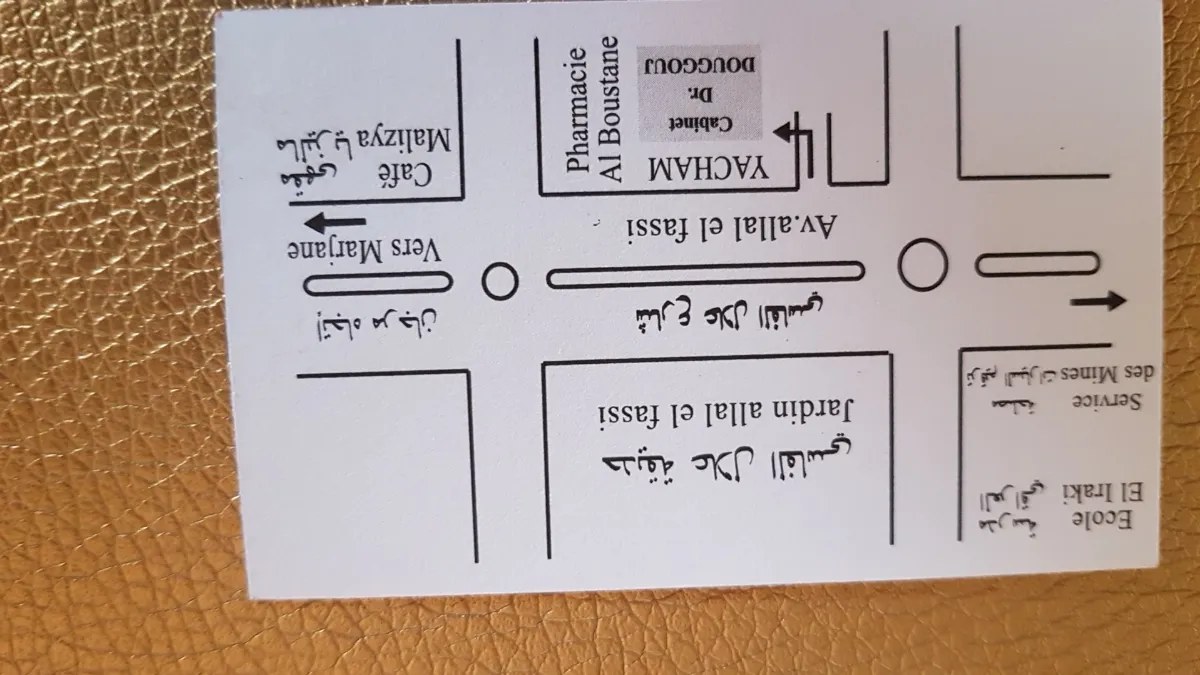 Ecole مدرسة
El Iraki العراقي
Service مصلحة
des Mines ترقيم السيارات
حديقة علال الفاسي
Jardin allal el fassi
شارع علال الفاسي
إتجاه مرجان
Av.allal el fassi
Vers Marjane
YACHAM
Cabinet
Dr.
DOUGGOUJ
Pharmacie
Al Boustane
Café مقهى
Malizya ماليزيا